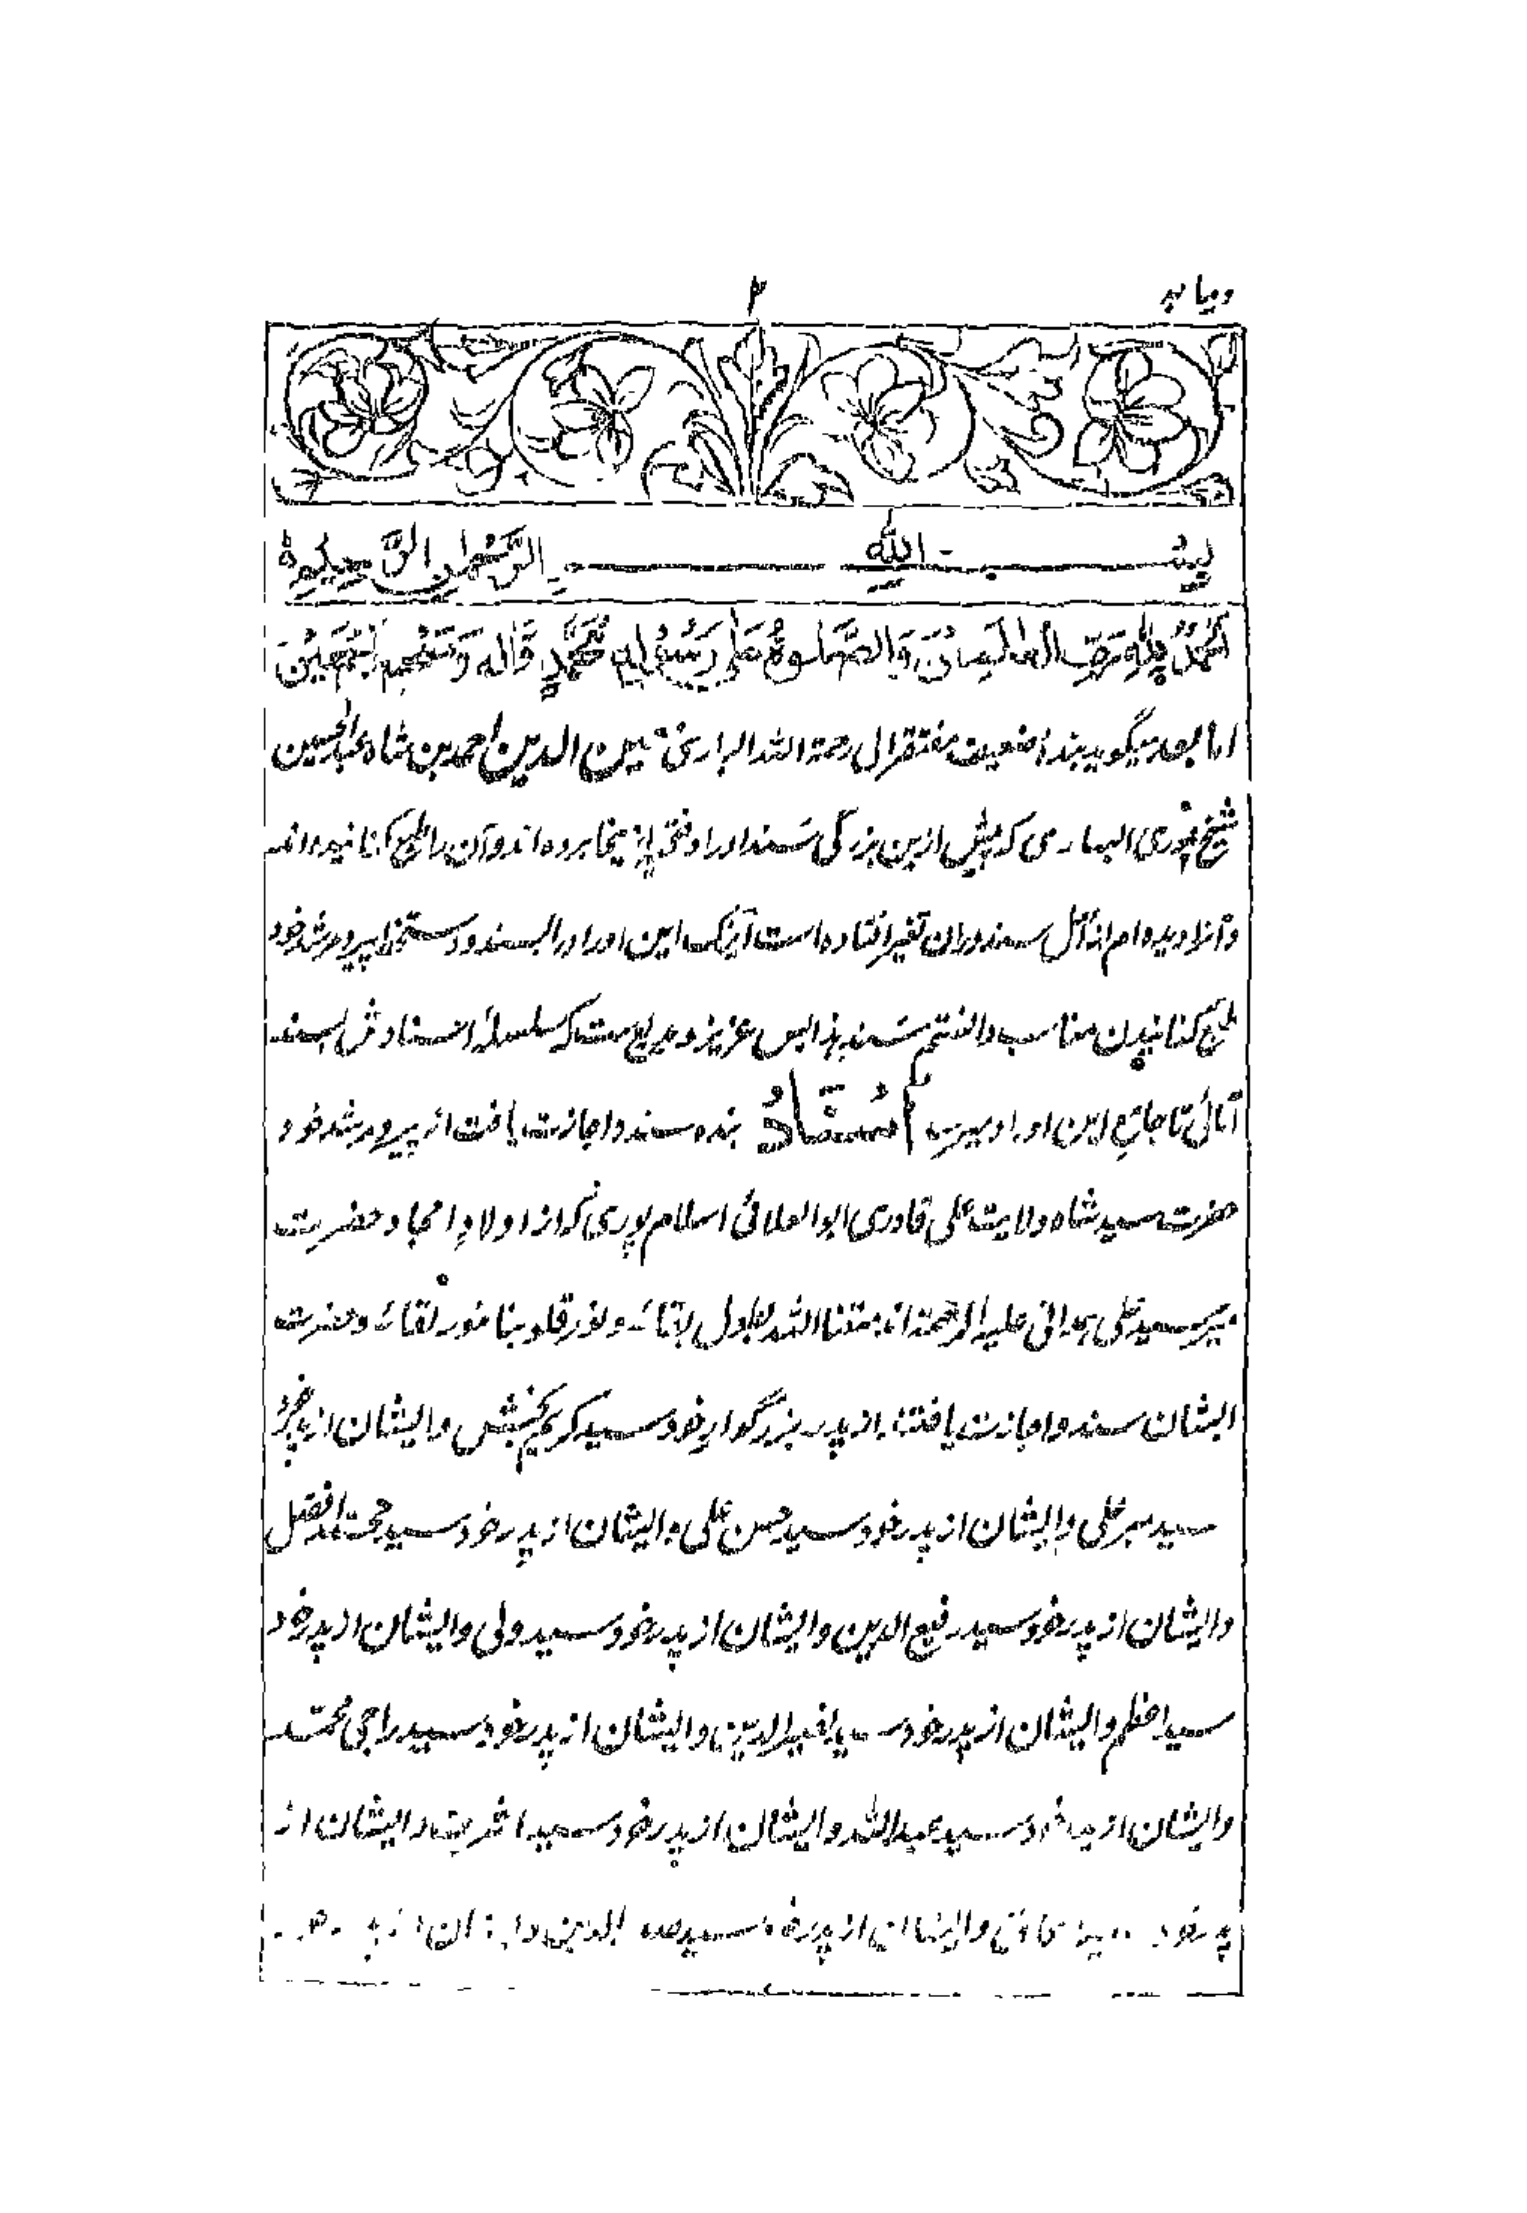 دیباچه
۲
بسم الله الرحمن الرحیم
الحمد لله رب العالمین والصلوة علی رسوله محمد وآله وصحبه اجمعین
اما بعد میگوید بندۀ ضعیف مفتقر الی رحمة الله الباری معین الدین احمد بن شاه عبدالحسین
شیخ پوری البهاری که پیش ازین بزرگی سند اوراد فتحیه از بنجا برده اند و آن را طبع کنانیده اند
و آنرا دیده ام از اصل سند در ان تغیر افتاده است اینک این اوراد را بسند و دستخط پیر و مرشد خود
طبع کنانیدن مناسب دانستم سند هذا بس عزیز و بدیع ست که سلسلۀ اسنادش بسند
آبائی تا جامع این اوراد میرسد اسناد بنده سند و اجازت یافت از پیر و مرشد خود
حضرت سید شاه ولایت علی قادری ابوالعلائی اسلام پوری که از اولاد امجاد حضرت
میر سید علی همدانی علیه الرحمة اند متعنا الله بطول بقائه و نور قلوبنا بنور لقائه و حضرت
ایشان سند و اجازت یافتند از پدر بزرگوار خود سید کریم بخش و ایشان از پدر خود
سید مهر علی و ایشان از پدر خود سید حسن علی و ایشان از پدر خود سید محمد افضل
و ایشان از پدر خود سید رفیع الدین و ایشان از پدر خود سید ولی و ایشان از پدر خود
سید اعظم و ایشان از پدر خود سید نصیر الدین و ایشان از پدر خود سید راجی محمد
و ایشان از پدر خود سید عبدالله و ایشان از پدر خود سید اشرف و ایشان از
پدر خود و ایشان از پدر خود سید الدین و ایشان از پدر خود